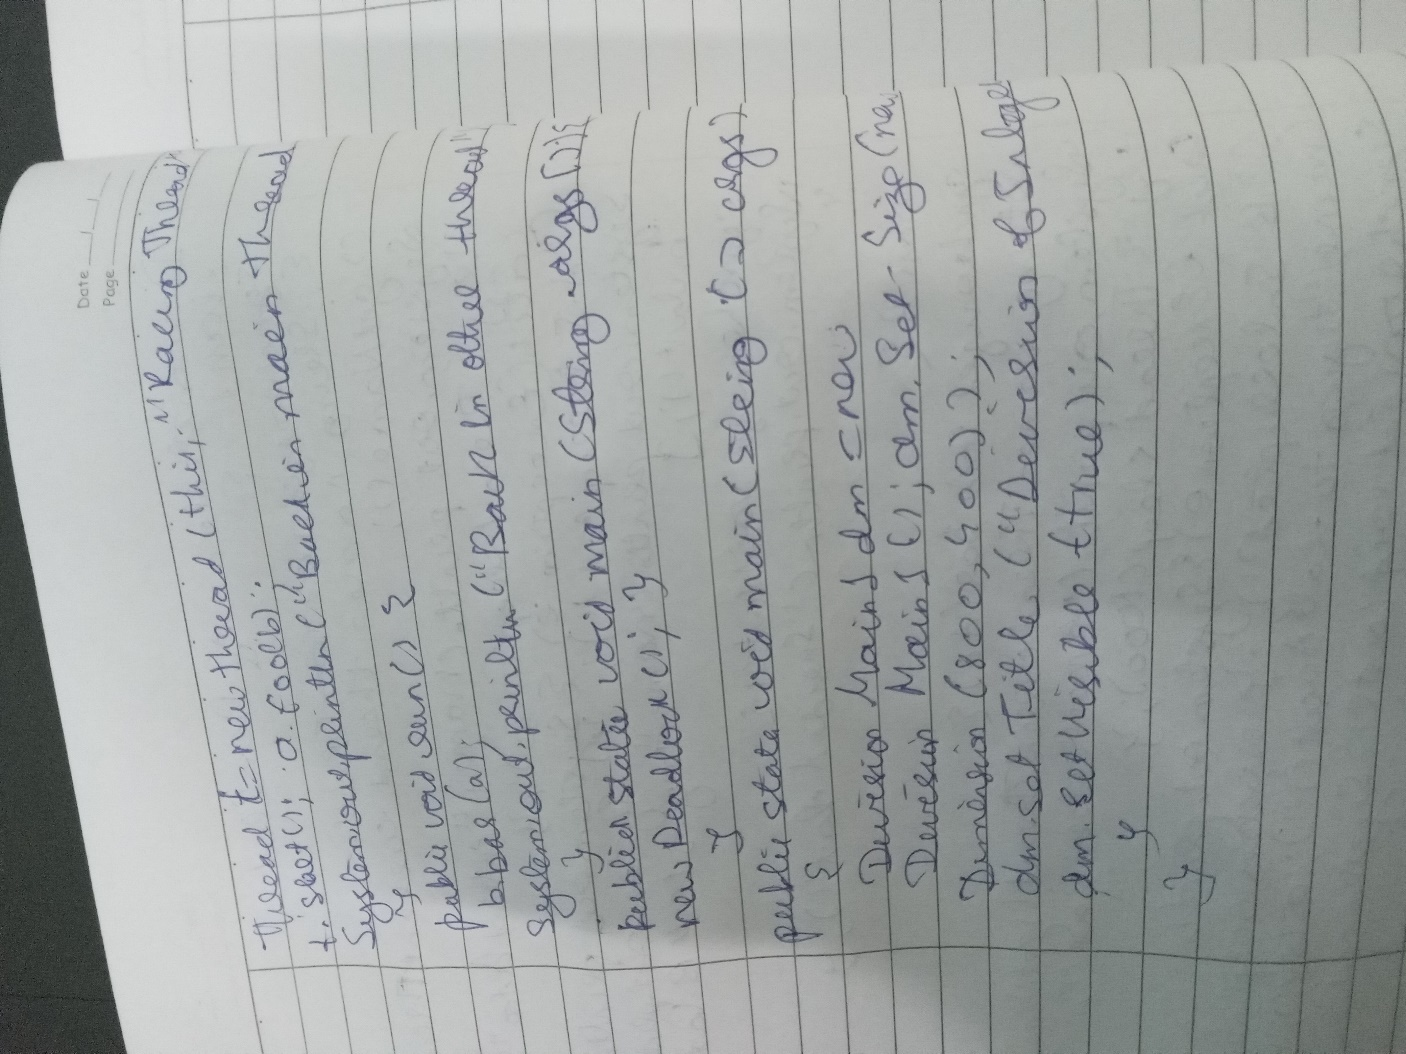 Date
Page
Thread t = new thread (this, "Racing Thread"
t. start(); a. foo(b);
System.out.println("Back in main thread
}
public void run() {
b.bar(a);
System.out.println ("Back in other thread"
}
public static void main (String args[]){
new Deadlock(); }
}
public static void main(String [] args)
{
Division Main1 dm = new
Division Main1 (); dm. Set Size(new
Dimension (800, 400));
dm.set Title ("Division of Integer
dm. set Visible (true);
}
}